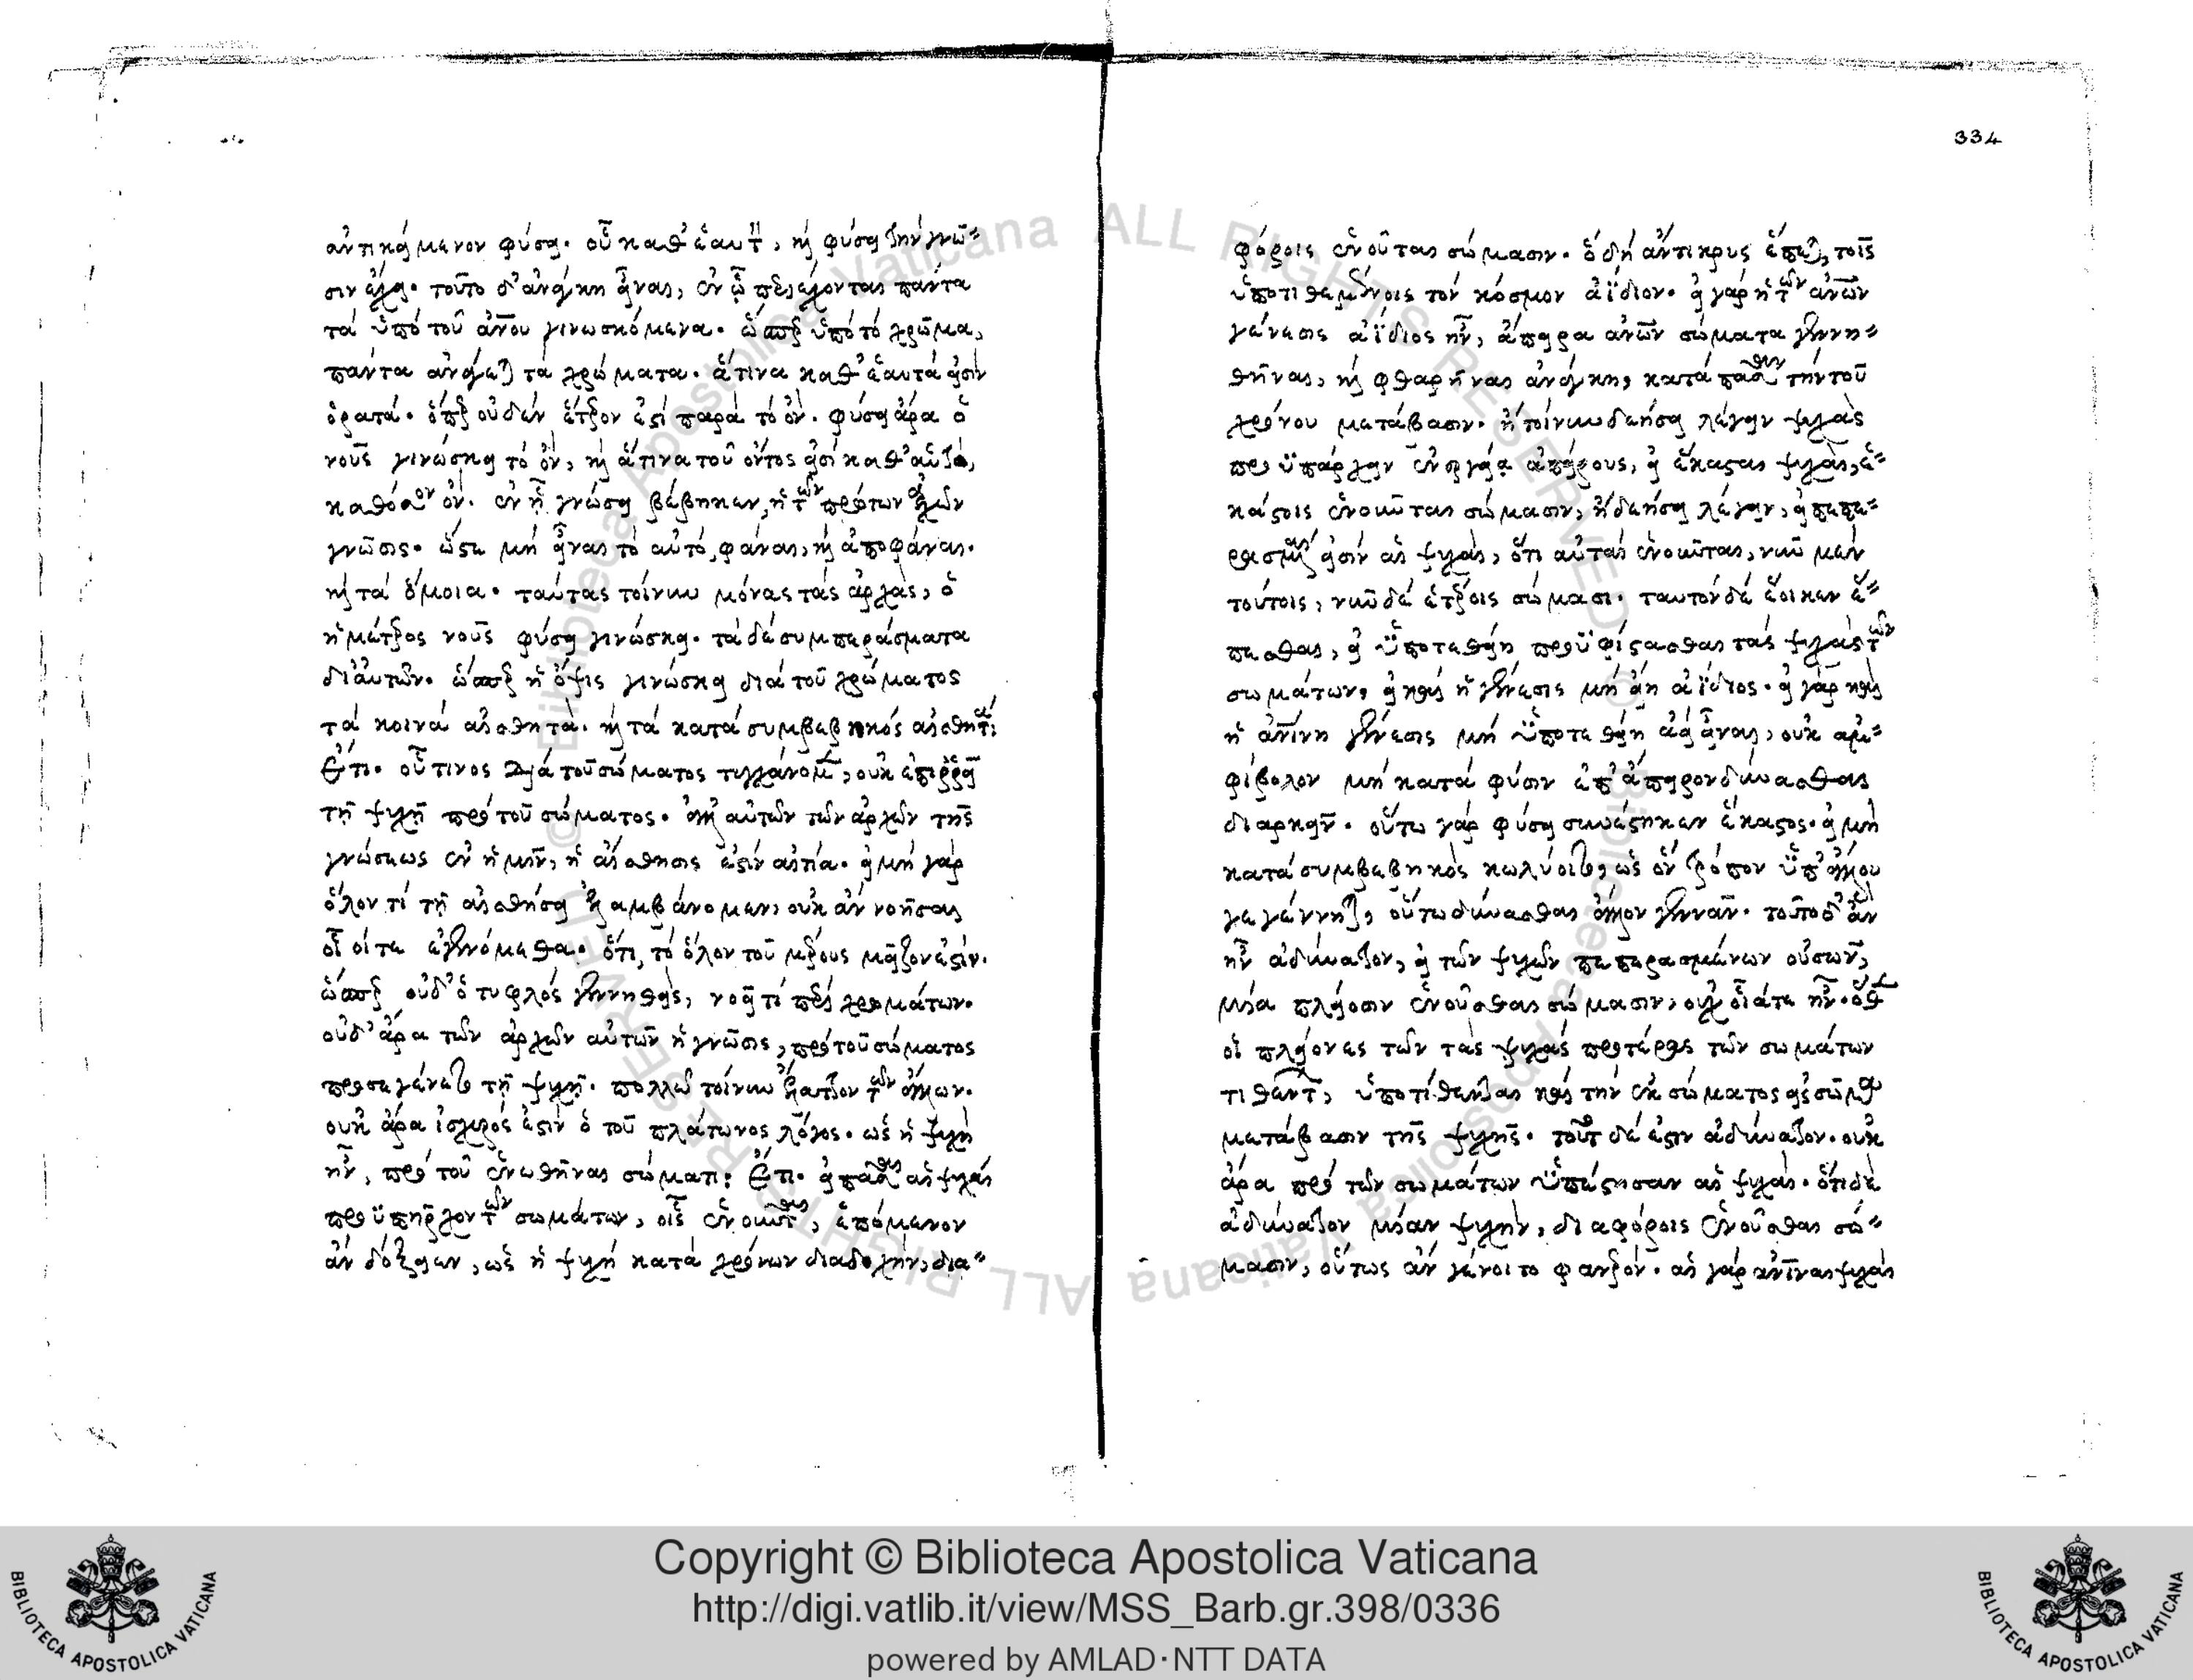 334
ἀντικείμενον φύσει. οὗ καθ' ἑαυτό, καὶ φύσει τὴν γνῶ-
σιν ἔχει. τοῦτο δ' ἀνάγκη εἶναι, ἐν ᾧ περιέχονται πάντα
τὰ ὑπὸ τοῦ ἀνου γινωσκόμενα. ὥσπερ ὑπὸ τὸ χρῶμα,
πάντα ἀνάγεται τὰ χρώματα. ἅτινα καθ' ἑαυτά εἰσιν
ὁρατά. ὅπερ οὐδὲν ἕτερον ἐστὶ παρὰ τὸ ὄν. φύσει ἄρα ὁ
νοῦς γινώσκει τὸ ὄν, καὶ ἅτινα τοῦ ὄντος εἰσὶ καθ' αὑτό,
καθόσον ὄν. ἐν ᾗ γνώσει βέβηκεν, ἡ τῶν πρώτων ἀρχῶν
γνῶσις. ὥστε μὴ εἶναι τὸ αὐτό, φάναι, καὶ ἀποφάναι.
καὶ τὰ ὅμοια. ταύτας τοίνυν μόνας τὰς ἀρχὰς, ὁ
ἡμέτερος νοῦς φύσει γινώσκει. τὰ δὲ συμπεράσματα
δι αὐτῶν. ὥσπερ ἡ ὄψις γινώσκει διὰ τοῦ χρώματος
τὰ κοινὰ αἰσθητὰ. καὶ τὰ κατὰ συμβεβηκός αἰσθητά:
Ἔτι. οὗτινος διὰ τοῦ σώματος τυγχάνομεν, οὐκ
τῇ ψυχῇ πρὸ τοῦ σώματος. αὐτῶν τῶν ἀρχῶν τῆς
γνώσεως ἐν ἡμῖν, ἡ αἴσθησις ἐστὶν αἰτία. εἰ μὴ γὰρ
ὅλον τί τῇ αἰσθήσει ἐλαμβάνομεν, οὐκ ἂν νοῆσαι
οἷοί τε ἐγενόμεθα. ὅτι, τὸ ὅλον τοῦ μέρους μεῖζον ἐστίν.
ὥσπερ οὐδ' ὁ τυφλός γεννηθεὶς, νοεῖ τί περὶ χρωμάτων.
οὐδ' ἄρα τῶν ἀρχῶν αὐτῶν ἡ γνῶσις, πρὸ τοῦ σώματος
προσεγένετο τῇ ψυχῇ. πολλῷ τοίνυν ἔλαττον τῶν ἄλλων.
οὐκ ἄρα ἰσχυρός ἐστιν ὁ τοῦ πλάτωνος λόγος. ὡς ἡ ψυχὴ
ἦν, πρὸ τοῦ ἑνωθῆναι σώματι: Ἔτι. εἰ πᾶσαι αἱ ψυχαί
προϋπῆρχον τῶν σωμάτων, οἷς ἑνοῦνται, ἑπόμενον
ἂν δόξειεν, ὡς ἡ ψυχὴ κατὰ χρόνων διαδοχὴν, δια-
φόροις ἑνοῦται σώμασιν. ὃ δὴ ἄντικρυς ἕπεται, τοῖς
ὑποτιθεμένοις τὸν κόσμον ἀΐδιον. εἰ γὰρ ἡ τῶν ἀνων
γένεσις ἀΐδιος ἦν, ἄπειρα ἀνων σώματα γεννη-
θῆναι, καὶ φθαρῆναι ἀνάγκη, κατὰ πᾶσαν τὴν τοῦ
χρόνου μετάβασιν. ἢ τοίνυν δεήσει λέγειν ψυχὰς
προϋπάρχειν ἐνεργείᾳ ἀπείρους, εἰ ἕκασται ψυχαὶ, ἑ-
κάστοις ἑνοῦνται σώμασιν, ἢ δεήσει λέγειν, εἰ πεπε-
ρασμέναι εἰσὶν αἱ ψυχαὶ, ὅτι αὐταὶ ἑνοῦνται, νῦν μὲν
τούτοις, νῦν δὲ ἑτέροις σώμασι. ταυτὸν δὲ ἔοικεν ἕ-
πεσθαι, εἰ ὑποτεθείη προϋφίστασθαι τὰς ψυχὰς τῶν
σωμάτων, εἰ καὶ ἡ γένεσις μὴ εἴη ἀΐδιος. εἰ γὰρ καὶ
ἡ ἀνίνη γένεσις μὴ ὑποτεθείη ἀεὶ εἶναι, οὐκ ἀμ-
φίβολον μὴ κατὰ φύσιν ἐπ' ἄπειρον δύνασθαι
διαρκεῖν. οὕτω γὰρ φύσει συνέστηκεν ἕκαστος. εἰ μὴ
κατὰ συμβεβηκὸς κωλύοιτο, ὡς ὃν τρόπον ὑπ' ἄλλου
γεγέννηται, οὕτω δύνασθαι ἄλλον γεννᾶν. τοῦτο δ' ἂν
ἦν ἀδύνατον, εἰ τῶν ψυχῶν πεπερασμένων οὐσῶν,
μία πλείοσιν ἑνοῦσθαι σώμασιν, οὐχ οἵα τε ἦν. ὅθεν
οἱ πλείονες τῶν τὰς ψυχὰς προτέρας τῶν σωμάτων
τιθέντων, ὑποτίθενται καὶ τὴν ἐκ σώματος εἰς σῶμα
μετάβασιν τῆς ψυχῆς. τοῦτο δέ ἐστιν ἀδύνατον. οὐκ
ἄρα πρὸ τῶν σωμάτων ὑπέστησαν αἱ ψυχαὶ. ὅτι δὲ
ἀδύνατον μίαν ψυχὴν, διαφόροις ἑνοῦσθαι σώ-
μασιν, οὕτως ἂν γένοιτο φανερὸν. αἱ γὰρ ἀνιναι ψυχαὶ
Copyright © Biblioteca Apostolica Vaticana
http://digi.vatlib.it/view/MSS_Barb.gr.398/0336
powered by AMLAD·NTT DATA
BIBLIOTECA APOSTOLICA VATICANA
BIBLIOTECA APOSTOLICA VATICANA